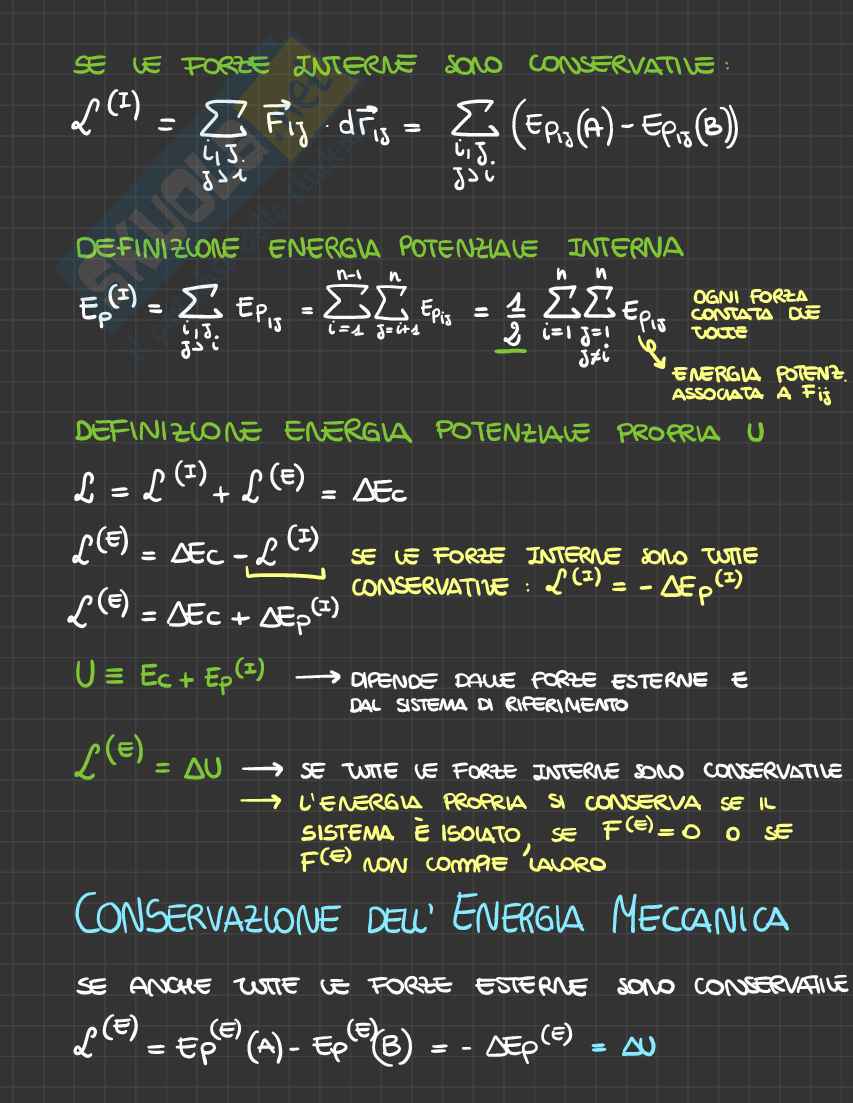 SE LE FORZE INTERNE SONO CONSERVATIVE:
ℒ^(I) = ∑_{i,j, j>i} F⃗ij · dr⃗ij = ∑_{i,j, j>i} (Epij(A) - Epij(B))
DEFINIZIONE ENERGIA POTENZIALE INTERNA
Ep^(I) = ∑_{i,j, j>i} Epij = ∑_{i=1}^{n-1} ∑_{j=i+1}^{n} Epij = 1/2 ∑_{i=1}^{n} ∑_{j=1, j≠i}^{n} Epij
OGNI FORZA
CONTATA DUE
VOLTE
ENERGIA POTENZ.
ASSOCIATA A Fij
DEFINIZIONE ENERGIA POTENZIALE PROPRIA U
ℒ = ℒ^(I) + ℒ^(E) = ΔEc
ℒ^(E) = ΔEc - ℒ^(I)
SE LE FORZE INTERNE SONO TUTTE
CONSERVATIVE: ℒ^(I) = - ΔEp^(I)
ℒ^(E) = ΔEc + ΔEp^(I)
U ≡ Ec + Ep^(I) → DIPENDE DALLE FORZE ESTERNE E
DAL SISTEMA DI RIFERIMENTO
ℒ^(E) = ΔU → SE TUTTE LE FORZE INTERNE SONO CONSERVATIVE
→ L'ENERGIA PROPRIA SI CONSERVA SE IL
SISTEMA È ISOLATO, SE F^(E) = 0 O SE
F^(E) NON COMPIE LAVORO
CONSERVAZIONE DELL'ENERGIA MECCANICA
SE ANCHE TUTTE LE FORZE ESTERNE SONO CONSERVATIVE
ℒ^(E) = Ep^(E)(A) - Ep^(E)(B) = - ΔEp^(E) = ΔU